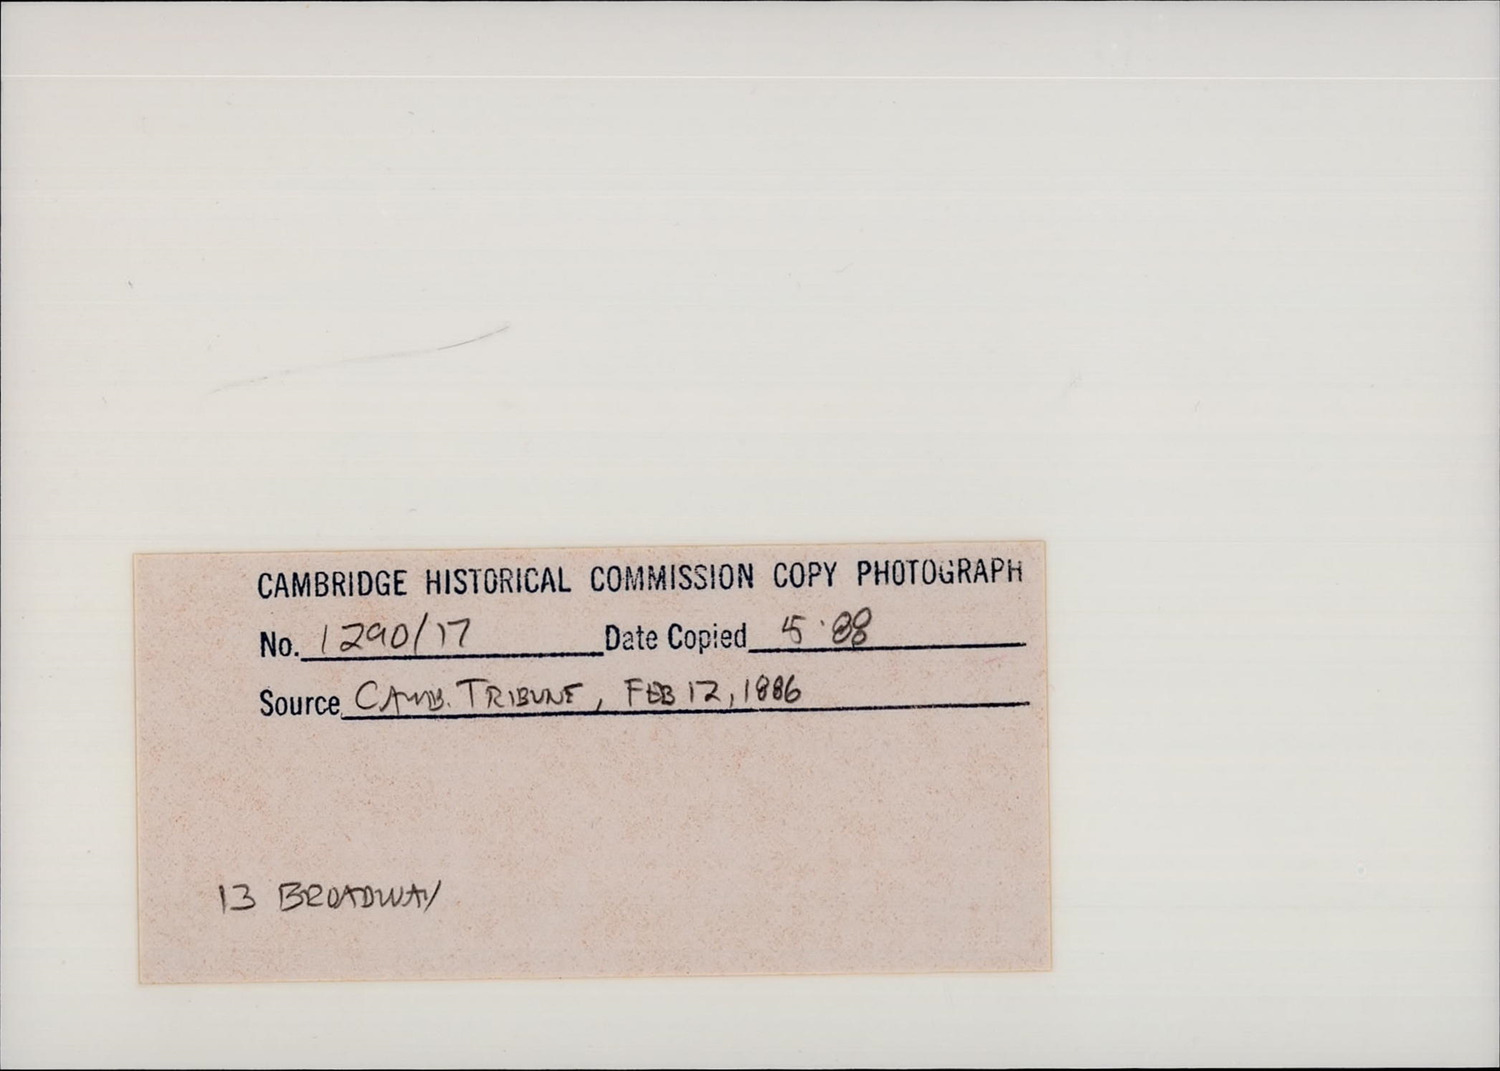 CAMBRIDGE HISTORICAL COMMISSION COPY PHOTOGRAPH
No. 1290/17 Date Copied 5·88
Source CAMB. TRIBUNE, FEB 12, 1886
13 BROADWAY